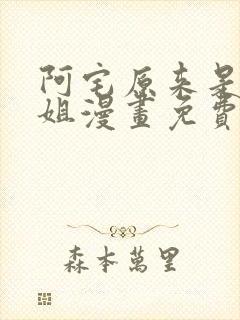 阿宅原来是
姐漫畫免費
森本萬里